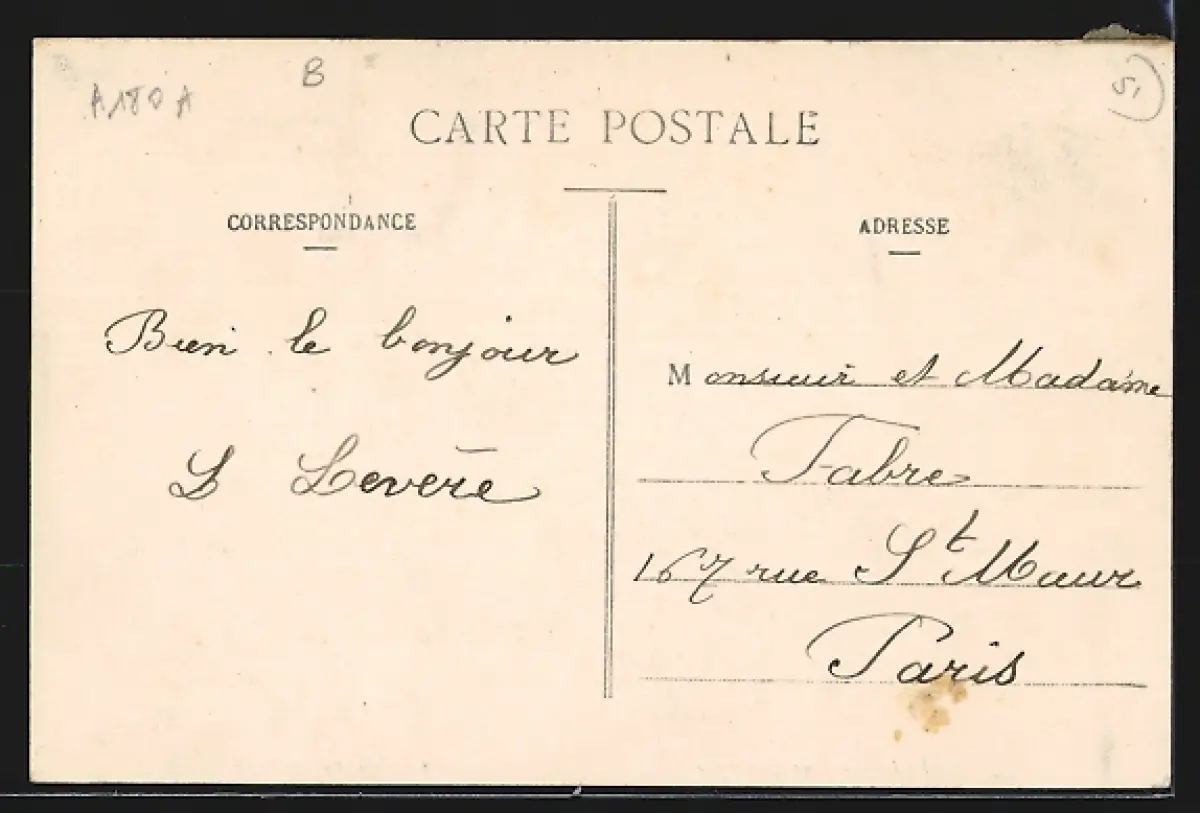 A180A
B
51
CARTE POSTALE
CORRESPONDANCE
ADRESSE
Bien le bonjour
L Levère
Monsieur et Madame
Fabre
167 rue St Maur
Paris